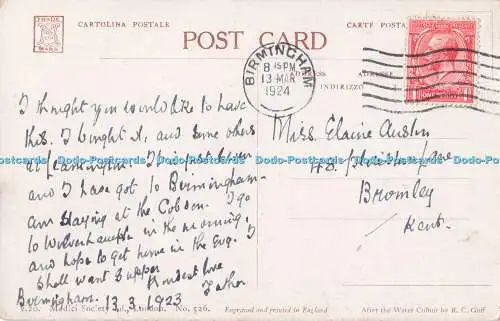 TRADE
MARK
CARTOLINA POSTALE
CARTE POSTALE
POST CARD
ADRESSE
INDIRIZZO
BIRMINGHAM
8 15 PM
13 MAR
1924
I thought you would like to have
this. I bought it, and some others
at Leamington.
and I have got to Birmingham.
am staying at the Cobden. I go
to Wolverhampton in the morning,
and hope to get home in the Evg. I
shall want supper
Kindest love
Father
Birmingham. 13.3.1923
Miss Elaine Austin
48.
Bromley
Kent.
V.26. Medici Society Ltd., London. No. 526.
Engraved and printed in England
After the Water Colour by R. C. Goff
Dodo-Postcards Dodo-Postcards Dodo-Postcards Dodo-Postcards Dodo-Postcards